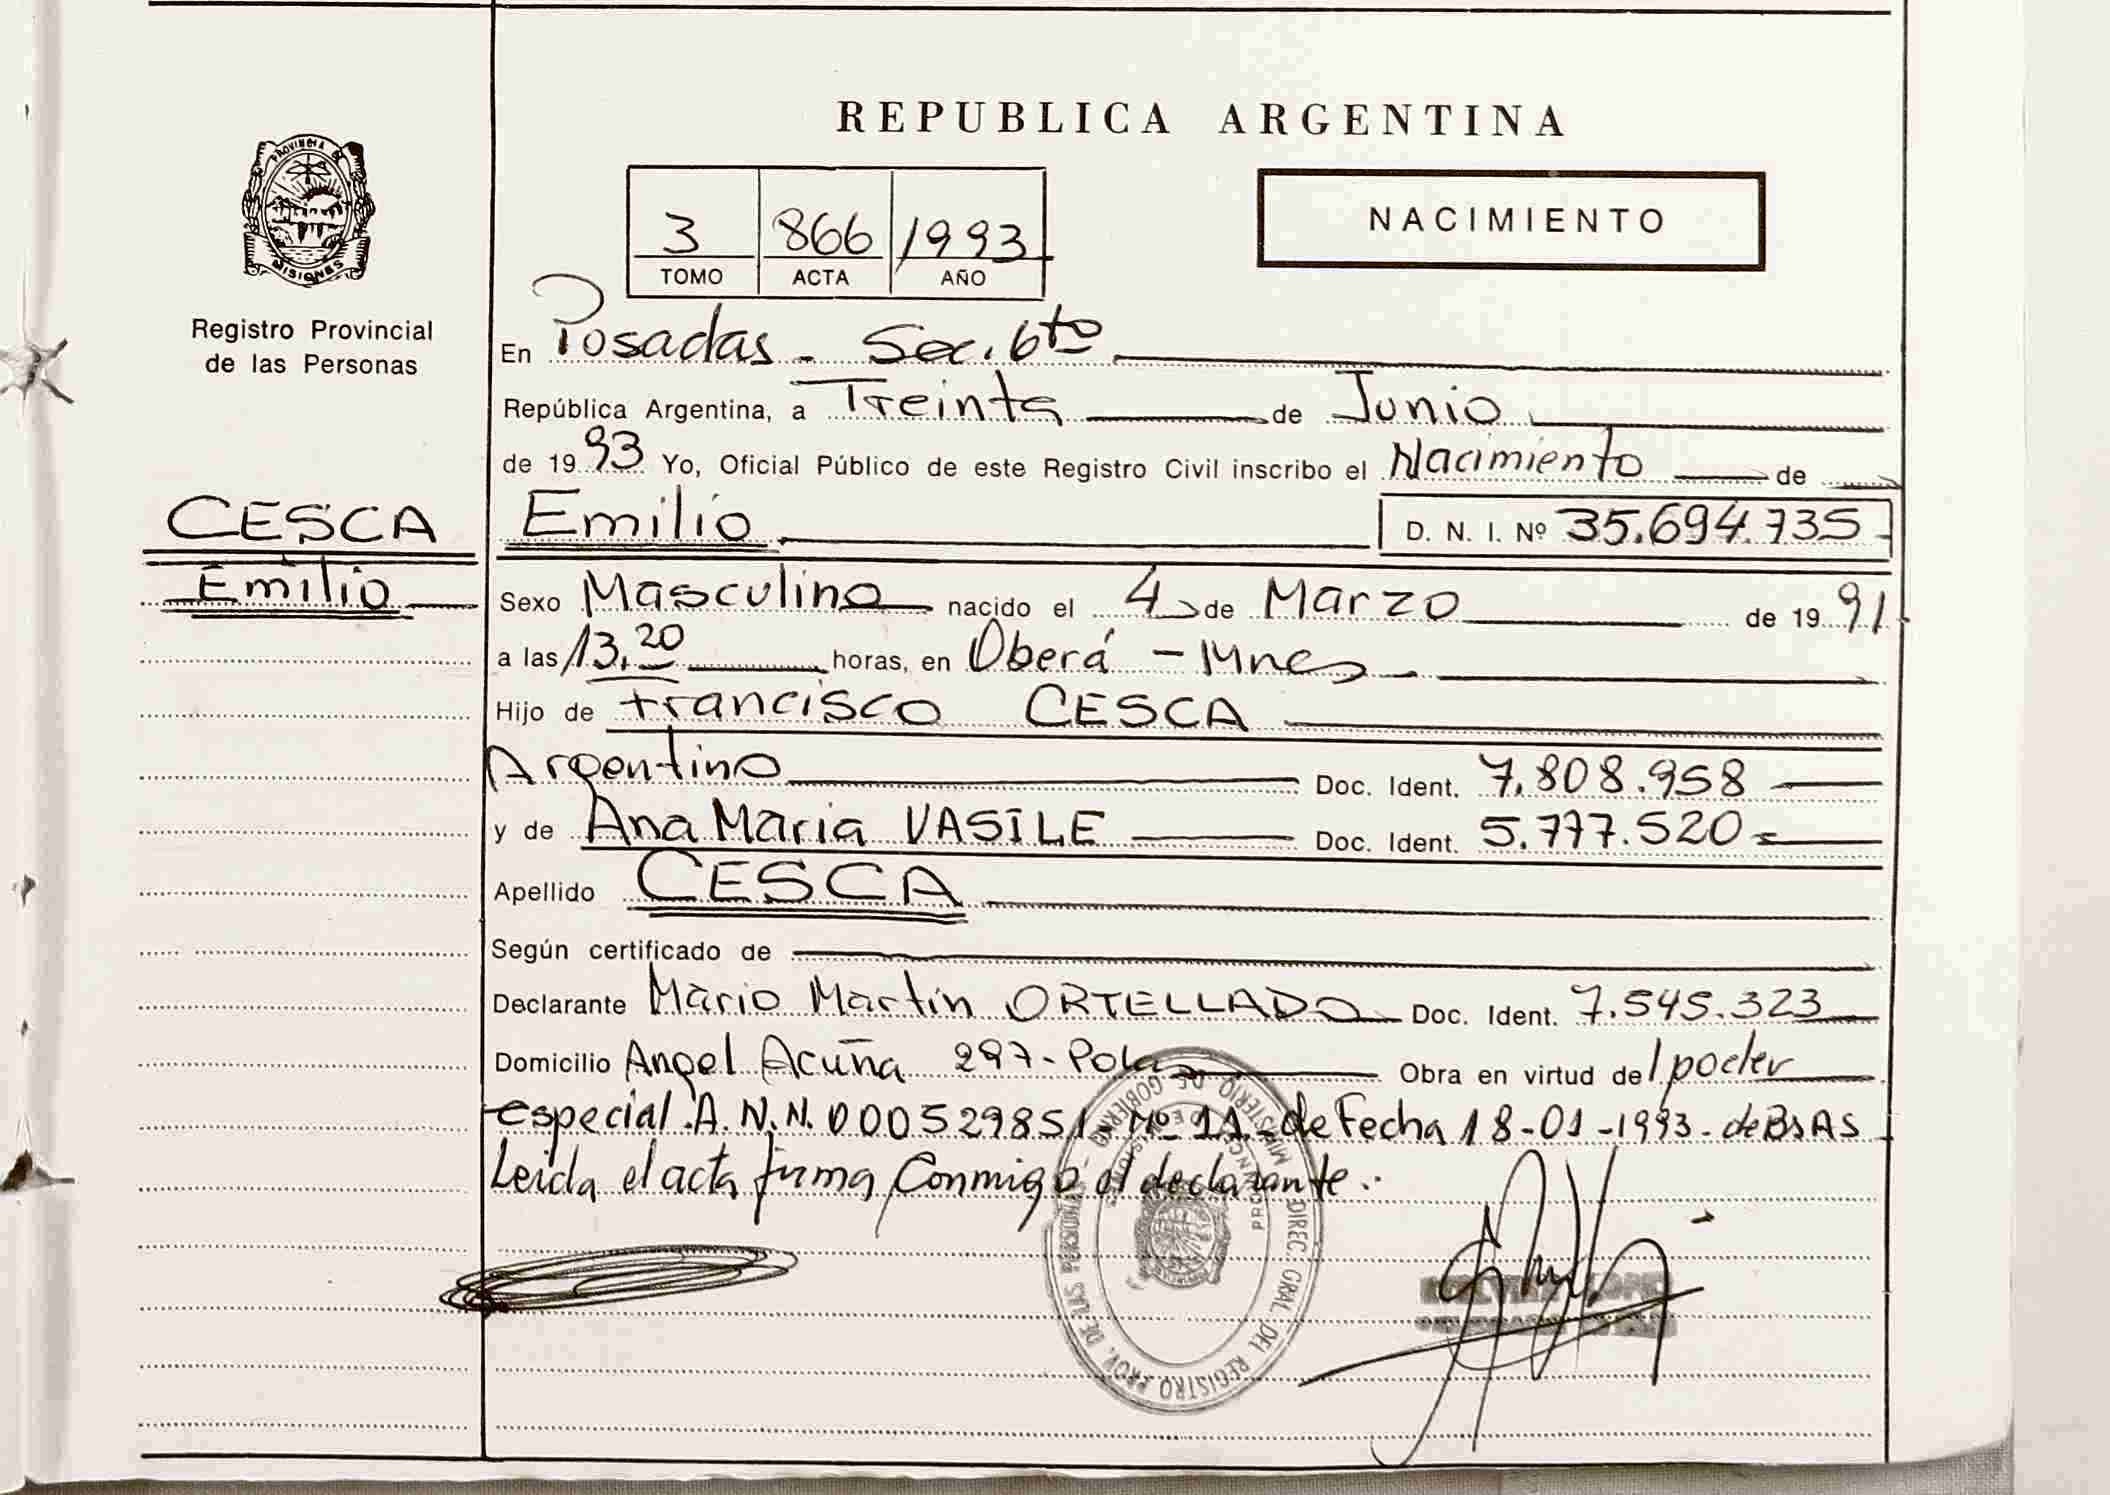 REPUBLICA ARGENTINA
PROVINCIA DE
MISIONES
Registro Provincial
de las Personas
3 866 1993
TOMO ACTA AÑO
NACIMIENTO
En Posadas - Sec. 6to
República Argentina, a Treinta de Junio
de 1993 Yo, Oficial Público de este Registro Civil inscribo el Nacimiento de
CESCA
Emilio
Emilio D. N. I. Nº 35.694.735
Sexo Masculino nacido el 4 de Marzo de 1991
a las 13,20 horas, en Oberá - Mnes
Hijo de Francisco CESCA
Argentino Doc. Ident. 7.808.958
y de Ana Maria VASILE Doc. Ident. 5.777.520
Apellido CESCA
Según certificado de
Declarante Mario Martín ORTELLADO Doc. Ident. 7.545.323
Domicilio Angel Acuña 297 - Pdas Obra en virtud del poder
especial A.N.N. 000529851 Nº 11 - de Fecha 18-01-1993 - de Bs As
Leida el acta firma Conmigo el declarante..
MINISTERIO DE GOBIERNO - DIREC. GRAL. DEL REGISTRO PROV. DE LAS PERSONAS